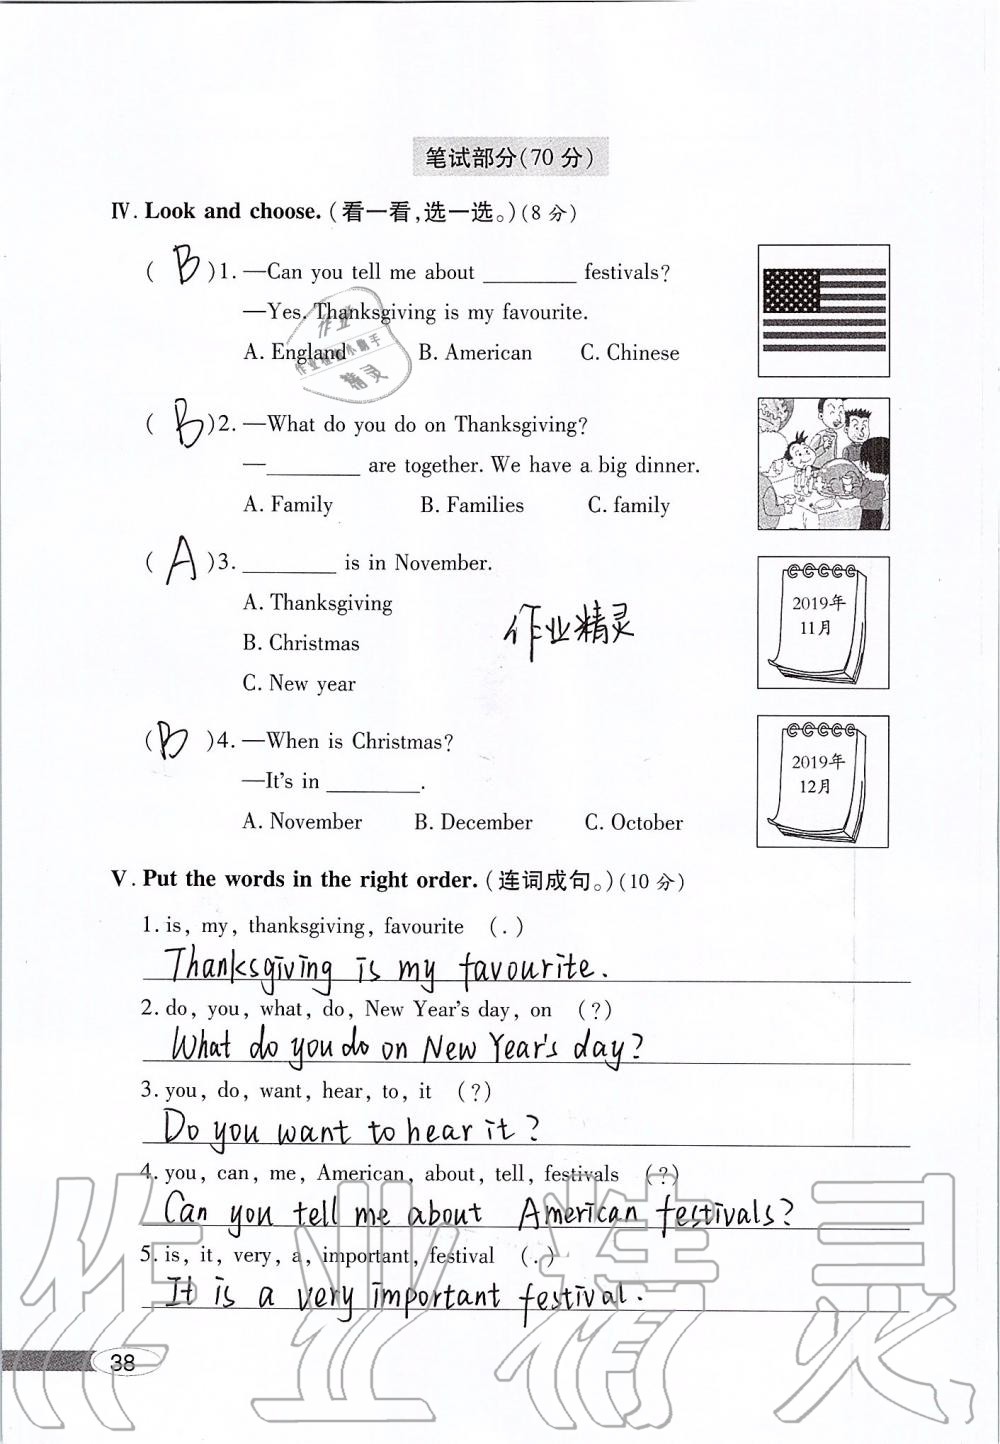 笔试部分(70 分)
Ⅳ. Look and choose. (看一看,选一选。)(8 分)
( B )1. —Can you tell me about ________ festivals?
—Yes. Thanksgiving is my favourite.
A. England B. American C. Chinese
( B )2. —What do you do on Thanksgiving?
—________ are together. We have a big dinner.
A. Family B. Families C. family
( A )3. ________ is in November.
A. Thanksgiving
B. Christmas
C. New year
2019年
11月
作业精灵
( B )4. —When is Christmas?
—It's in ________.
A. November B. December C. October
2019年
12月
Ⅴ. Put the words in the right order. (连词成句。)(10 分)
1. is, my, thanksgiving, favourite (.)
Thanksgiving is my favourite.
2. do, you, what, do, New Year's day, on (?)
What do you do on New Year's day?
3. you, do, want, hear, to, it (?)
Do you want to hear it?
4. you, can, me, American, about, tell, festivals (?)
Can you tell me about American festivals?
5. is, it, very, a, important, festival (.)
It is a very important festival.
38
作业精灵